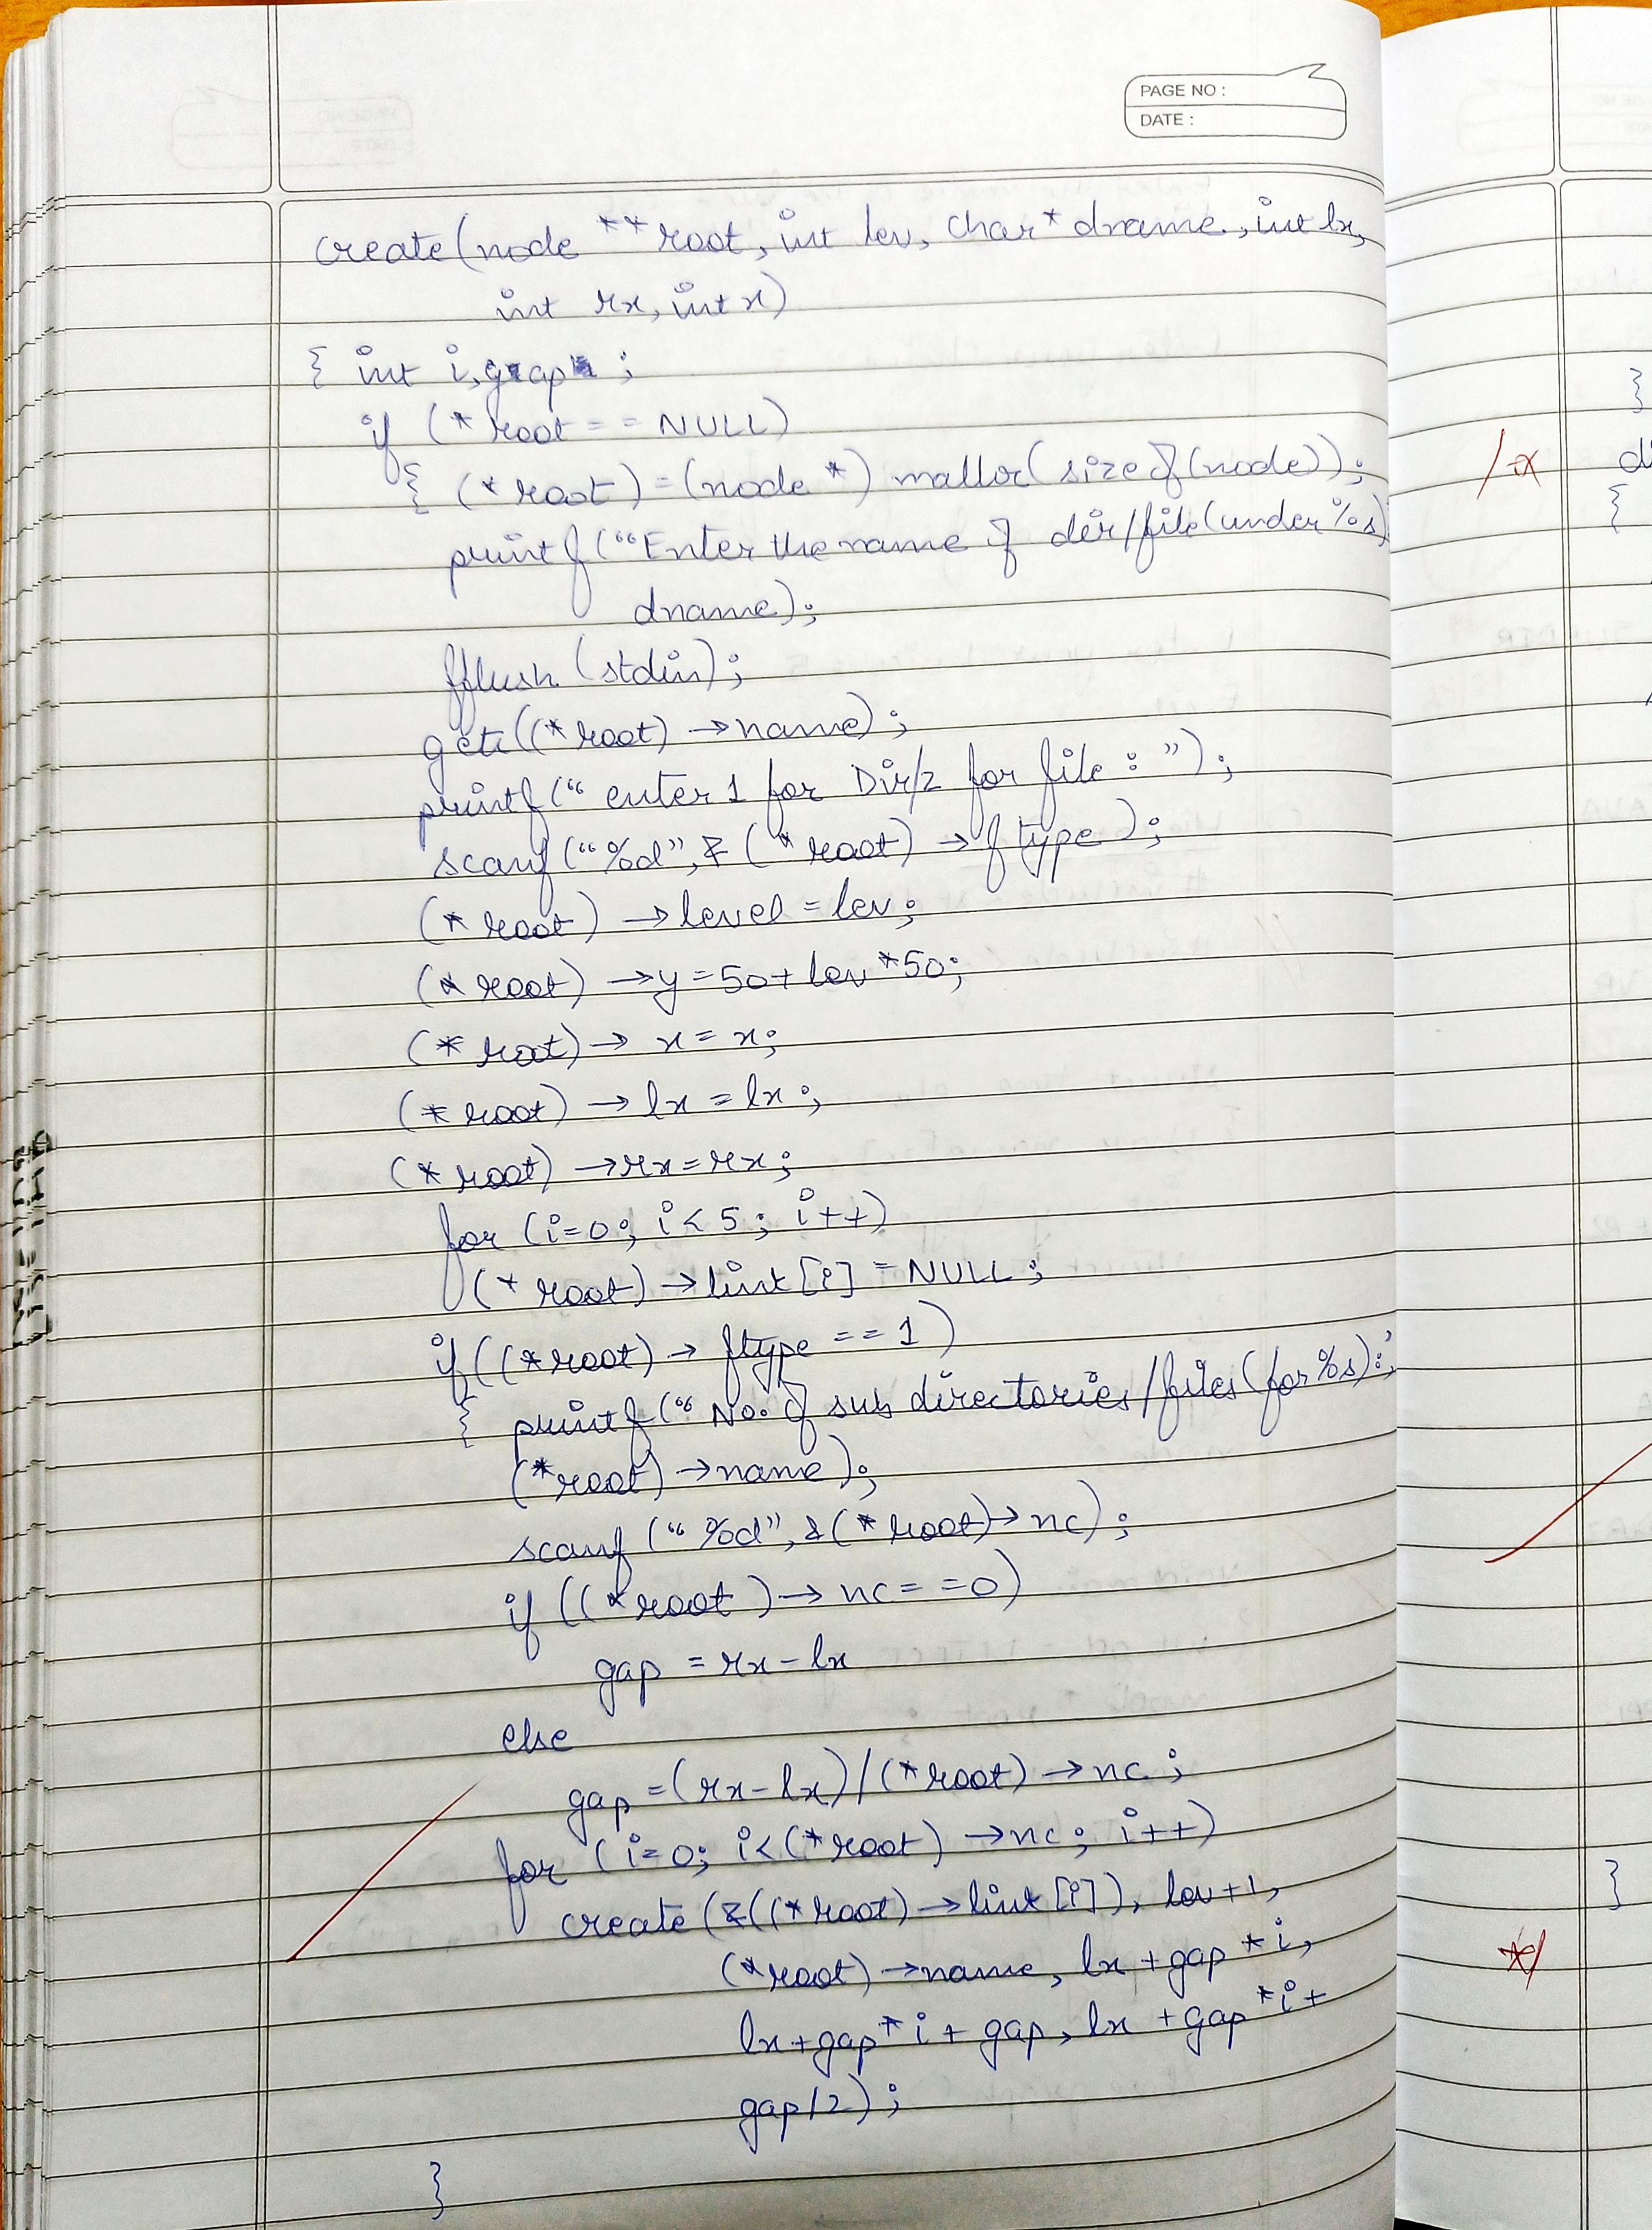 PAGE NO :
DATE :
create(node **root, int lev, char* dname, int lx,
int rx, int x)
{ int i, gap ;
if (*root == NULL)
{ (*root) = (node *) malloc(sizeof(node));
printf("Enter the name of dir/file(under %s)
dname);
fflush (stdin);
gets((*root) →name);
printf("enter 1 for Dir/2 for file : ");
scanf("%d", & (*root) → ftype);
(*root) →level = lev;
(*root) →y = 50 + lev *50;
(*root) → x = x;
(*root) → lx = lx;
(*root) →rx = rx;
for (i=0; i<5; i++)
(*root) →link [i] = NULL;
if((*root) → ftype == 1)
{ printf("No. of sub directories/files(for %s):;
(*root) →name);
scanf ("%d", &(*root)→ nc);
if ((*root) → nc == 0)
gap = rx - lx
else
gap = (rx - lx) / (*root) → nc ;
for (i=0; i<(*root) →nc; i++)
create (&((*root) →link [i]), lev+1,
(*root) →name, lx + gap * i,
lx + gap * i + gap, lx + gap * i +
gap/2);
}
}
{
*/
}